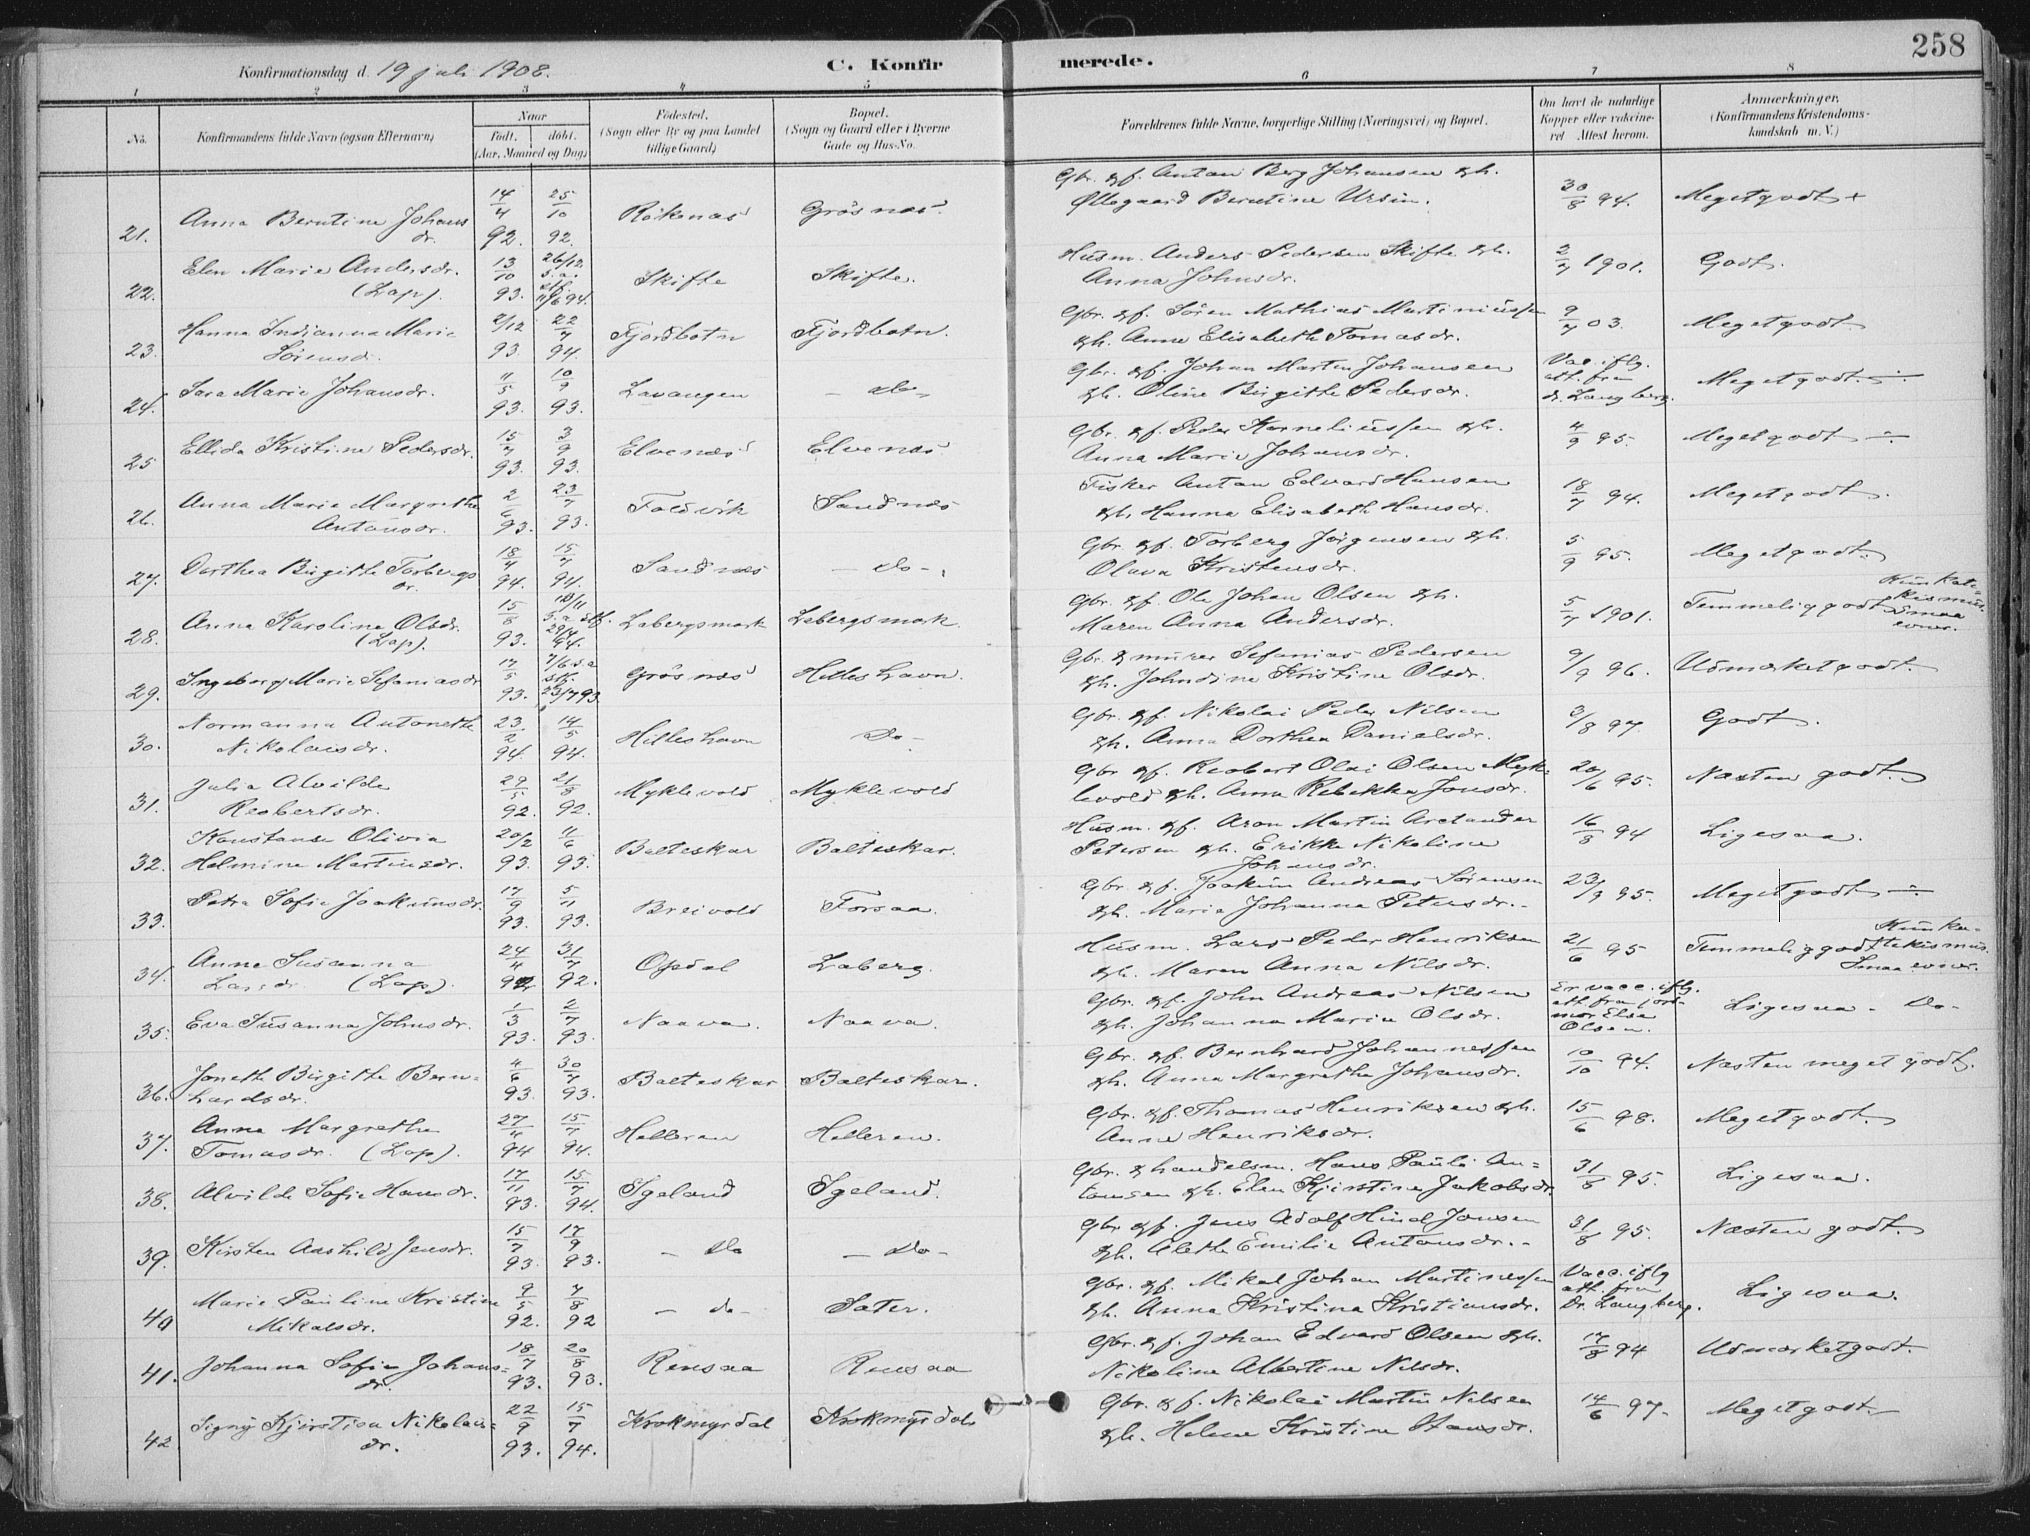 258
Konfirmationsdag d. 19 juli 1908.
C. Konfirmerede.
1 2 3 4 5 6 7 8
No.
Konfirmandens fulde Navn (ogsaa Efternavn)
Naar
født. døbt.
(Aar, Maaned og Dag)
Fødested.
(Sogn eller By og paa Landet
tillige Gaard)
Bopæl.
(Sogn og Gaard eller i Byerne
Gade og Hus-No.
Forældrenes fulde Navne, borgerlige Stilling (Næringsvei) og Bopæl.
Om havt de naturlige
Kopper eller vakcineret
Attest herom.
Anmærkninger.
(Konfirmandens Kristendomskundskab
m. V.)
21. Anna Berntine Johansdr. 14/4 92. 25/10 92. Röknes Grösnes. Gbr. & f. Antan Berg Johansen & h.
Ollegaard Berntine Ursin. 30/8 94. Megetgodt +
22. Elen Marie Andersdr. (Lap). 13/10 93. 26/12 s.a. stf. 11/6 94. Skifte Skifte. Husm. Anders Pedersen Skifte & h.
Anna Johnsdr. 2/7 1901. Godt.
23. Hanna Indianna Marie Sørensd. 2/12 93. 22/7 94. Fjordbotn Fjordbotn. Gbr. & f. Sören Mathias Martiniussen
& h. Anne Elisabeth Tomasdr. 9/7 03. Megetgodt
24. Sara Marie Johansdr. 11/5 93. 10/9 93. Lavangen – do – Gbr. & f. Johan Martin Johansen
& h. Oline Birgitte Pedersdr. Vac. iflg. att. fra dr. Langberg. Megetgodt. ÷
25 Ellida Kristine Pedersdr. 15/7 93. 3/9 93. Elvenæs Elvenæs Gbr. & f. Peder Korneliussen & h.
Anna Marie Johansdr. 4/9 95. Megetgodt ÷
26. Anna Marie Margrethe Antonsdr. 2/6 93. 23/7 93. Foldvik Sandnæs Fisker Antan Edvard Hansen
& h. Hanna Elisabeth Hansdr. 18/7 94. Megetgodt.
27. Dorthea Birgitte Torbergsdr. 18/4 94. 15/7 94. Sandnæs – do – Gbr. & f. Torberg Jörgensen & h.
Olava Kristensdr. 5/9 95. Megetgodt.
28. Anna Karoline Olsdr. (Lap). 15/8 93. s.a. stf. 29/4 94. Labergsmark Labergsmark. Gbr. & f. Ole Johan Olsen & h.
Maren Anna Andersdr. 5/7 1901. Temmeliggodt Kun katekismus. Smaa evner.
29. Ingeborg Marie Sefaniasdr 17/5 93. 7/6 s.a stf. 23/7 93. Grösnæs Hilleshavn. Gbr. & murer Sefanias Pedersen
& h. Johndine Kristine Olsdr. 9/9 96. Udmærketgodt.
30. Normanna Antonette Nikolaisdr. 23/2 94. 14/5 94. Hilleshavn Do – Gbr. & f. Nikolai Peder Nilsen
& h. Anna Dorthea Danielsdr. 3/8 97. Godt.
31. Julia Alvilde Reobertsdr. 29/5 92. 21/8 92. Myklevold Myklevold Gbr. & f. Reobert Olai Olsen Myklevold
& h. Anna Rebekka Jonsdr. 20/6 95. Næsten godt.
32. Konstanse Olivia Helmine Martinsdr. 20/2 93. 11/6 93. Balteskar Balteskar. Husm. & f. Aron Martin Aretander
Petersen & h. Erikke Nikoline
Johansdr. 16/8 94 Ligesaa.
33. Petra Sofie Joakimsdr. 17/9 93. 5/11 93. Breivold Forsaa. Gbr. & f. Joakim Andreas Sörensen
& h. Marie Johanna Petersdr. – 23/9 95. Megetgodt ÷
34. Anne Susanna Larsdr (Lap). 24/4 92. 31/7 92. Opdal Laberg. Husm. Lars Peder Henriksen
& h. Maren Anna Nilsdr. 21/6 95 Temmeliggodt Kun katekismus. Smaa evner.
35. Eva Susanna Johnsdr. 1/3 93. 2/7 93. Naava. Naava. Gbr. & f. John Andreas Nilsen
& h. Johanna Marie Olsdr. Er vacc. iflg. att. fra jordmor Elsa Olsen. Ligesaa – Do –
36. Jonette Birgitte Bernhardsdr. 4/6 93. 30/7 93. Balteskar Balteskar. Gbr. & f. Bernhard Johannessen
& h. Anna Margrethe Johansdr. 10/10 94. Næsten meget godt.
37. Anna Margrethe Tomasdr. (Lap). 27/4 94 15/7 94. Helleren Helleren. Gbr. & f. Thomas Henriksen & h.
Anne Henriksdr. 15/6 98. Megetgodt.
38. Alvilde Sofie Hansdr. 17/11 93. 15/7 94. Igeland Igeland. Gbr. & handelsm. Hans Pauli Antonsen
& h. Elen Kjirstine Jakobsdr. 31/8 95. Ligesaa.
39. Kirsten Aashild Jensdr. 15/7 93. 17/9 93. – Do – Do – Gbr. & f. Jens Adolf Hind Jonsen
& h. Alette Emilie Antonsdr. – 31/8 95. Næsten godt.
40 Marie Pauline Kristine Mikalsdr. 9/5 92. 7/8 92 – do – Sater. Gbr. & f. Mikal Johan Martinessen
& h. Anna Kristina Kristiansdr. Vacc. iflg att. fra Dr. Langberg. Ligesaa.
41. Johanna Sofie Johansdr. 18/7 93. 20/8 93. Rensaa Rensaa Gbr. & f. Johan Edvard Olsen & h.
Nikoline Albertine Nilsdr. 17/8 94 Udmærketgodt.
42 Signy Kjirstina Nikolaisdr. 22/9 93. 15/7 94. Krokmyrdal Krokmyrdal Gbr. & f. Nikolai Martin Nilsen
& h. Helene Kristine Hansdr. 14/6 97. Megetgodt.